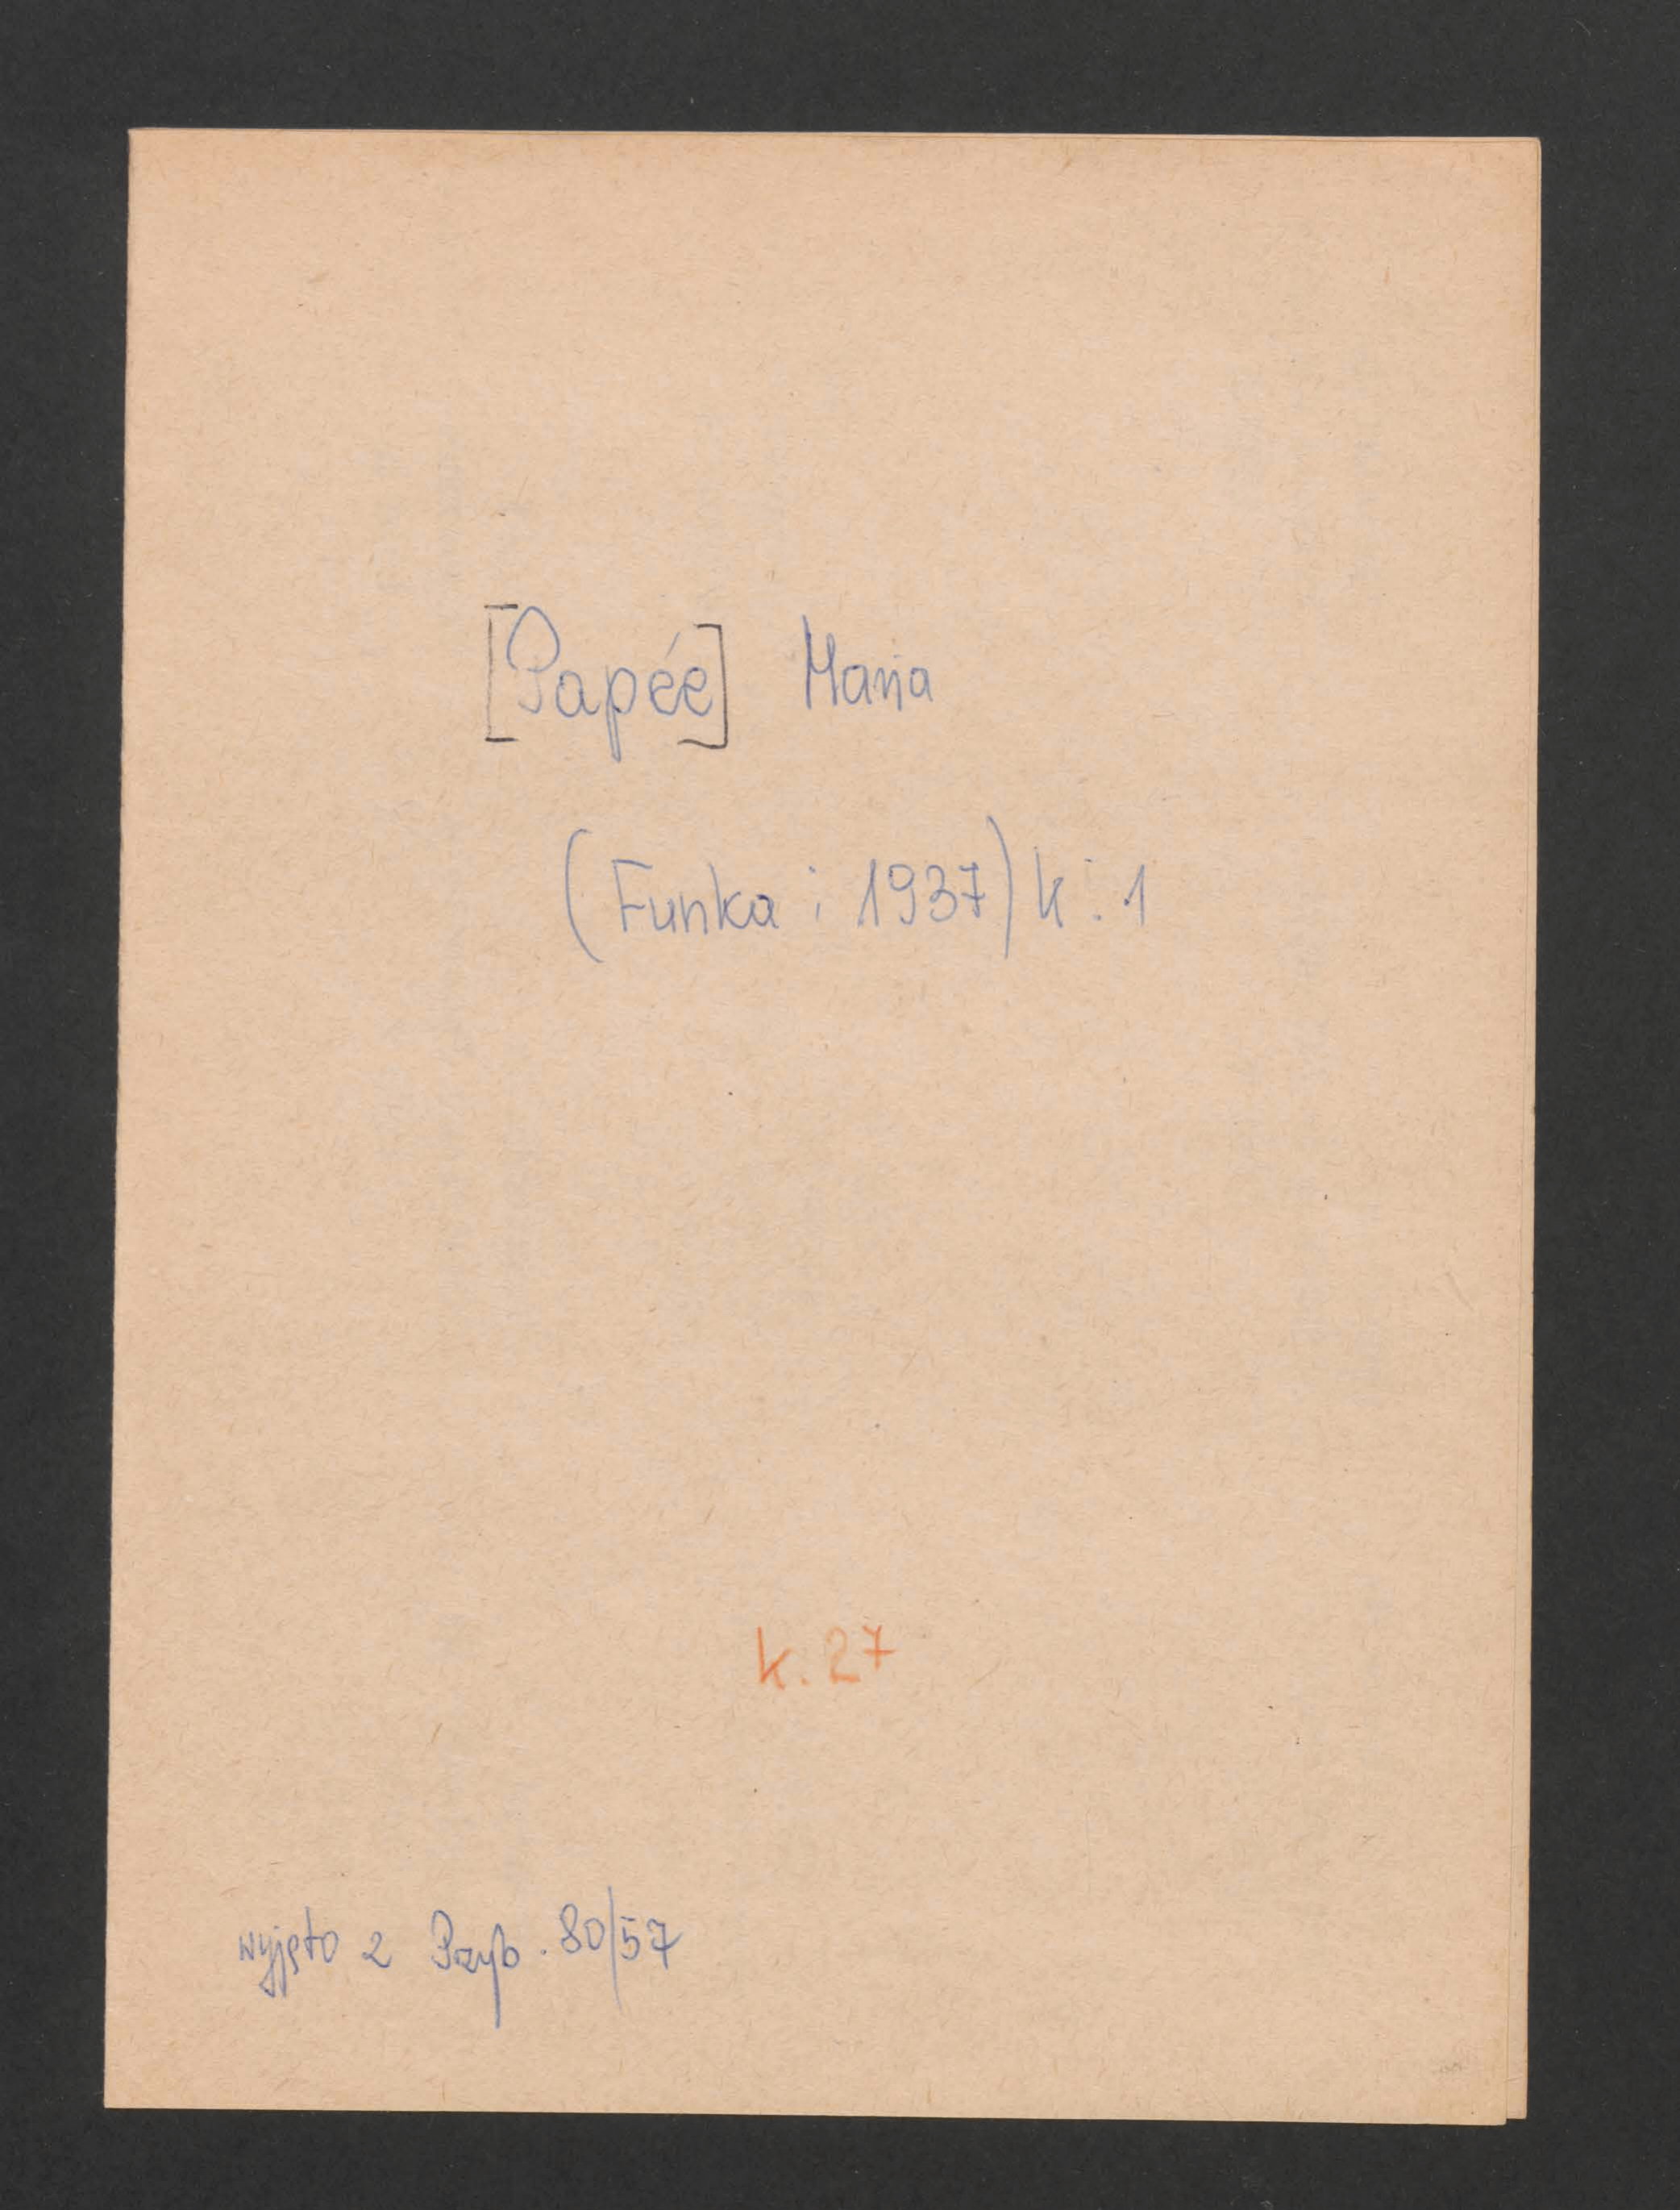 [Papée] Maria
(Funka : 1937) k. 1
k. 27
wyjęto z Przyb. 80/57